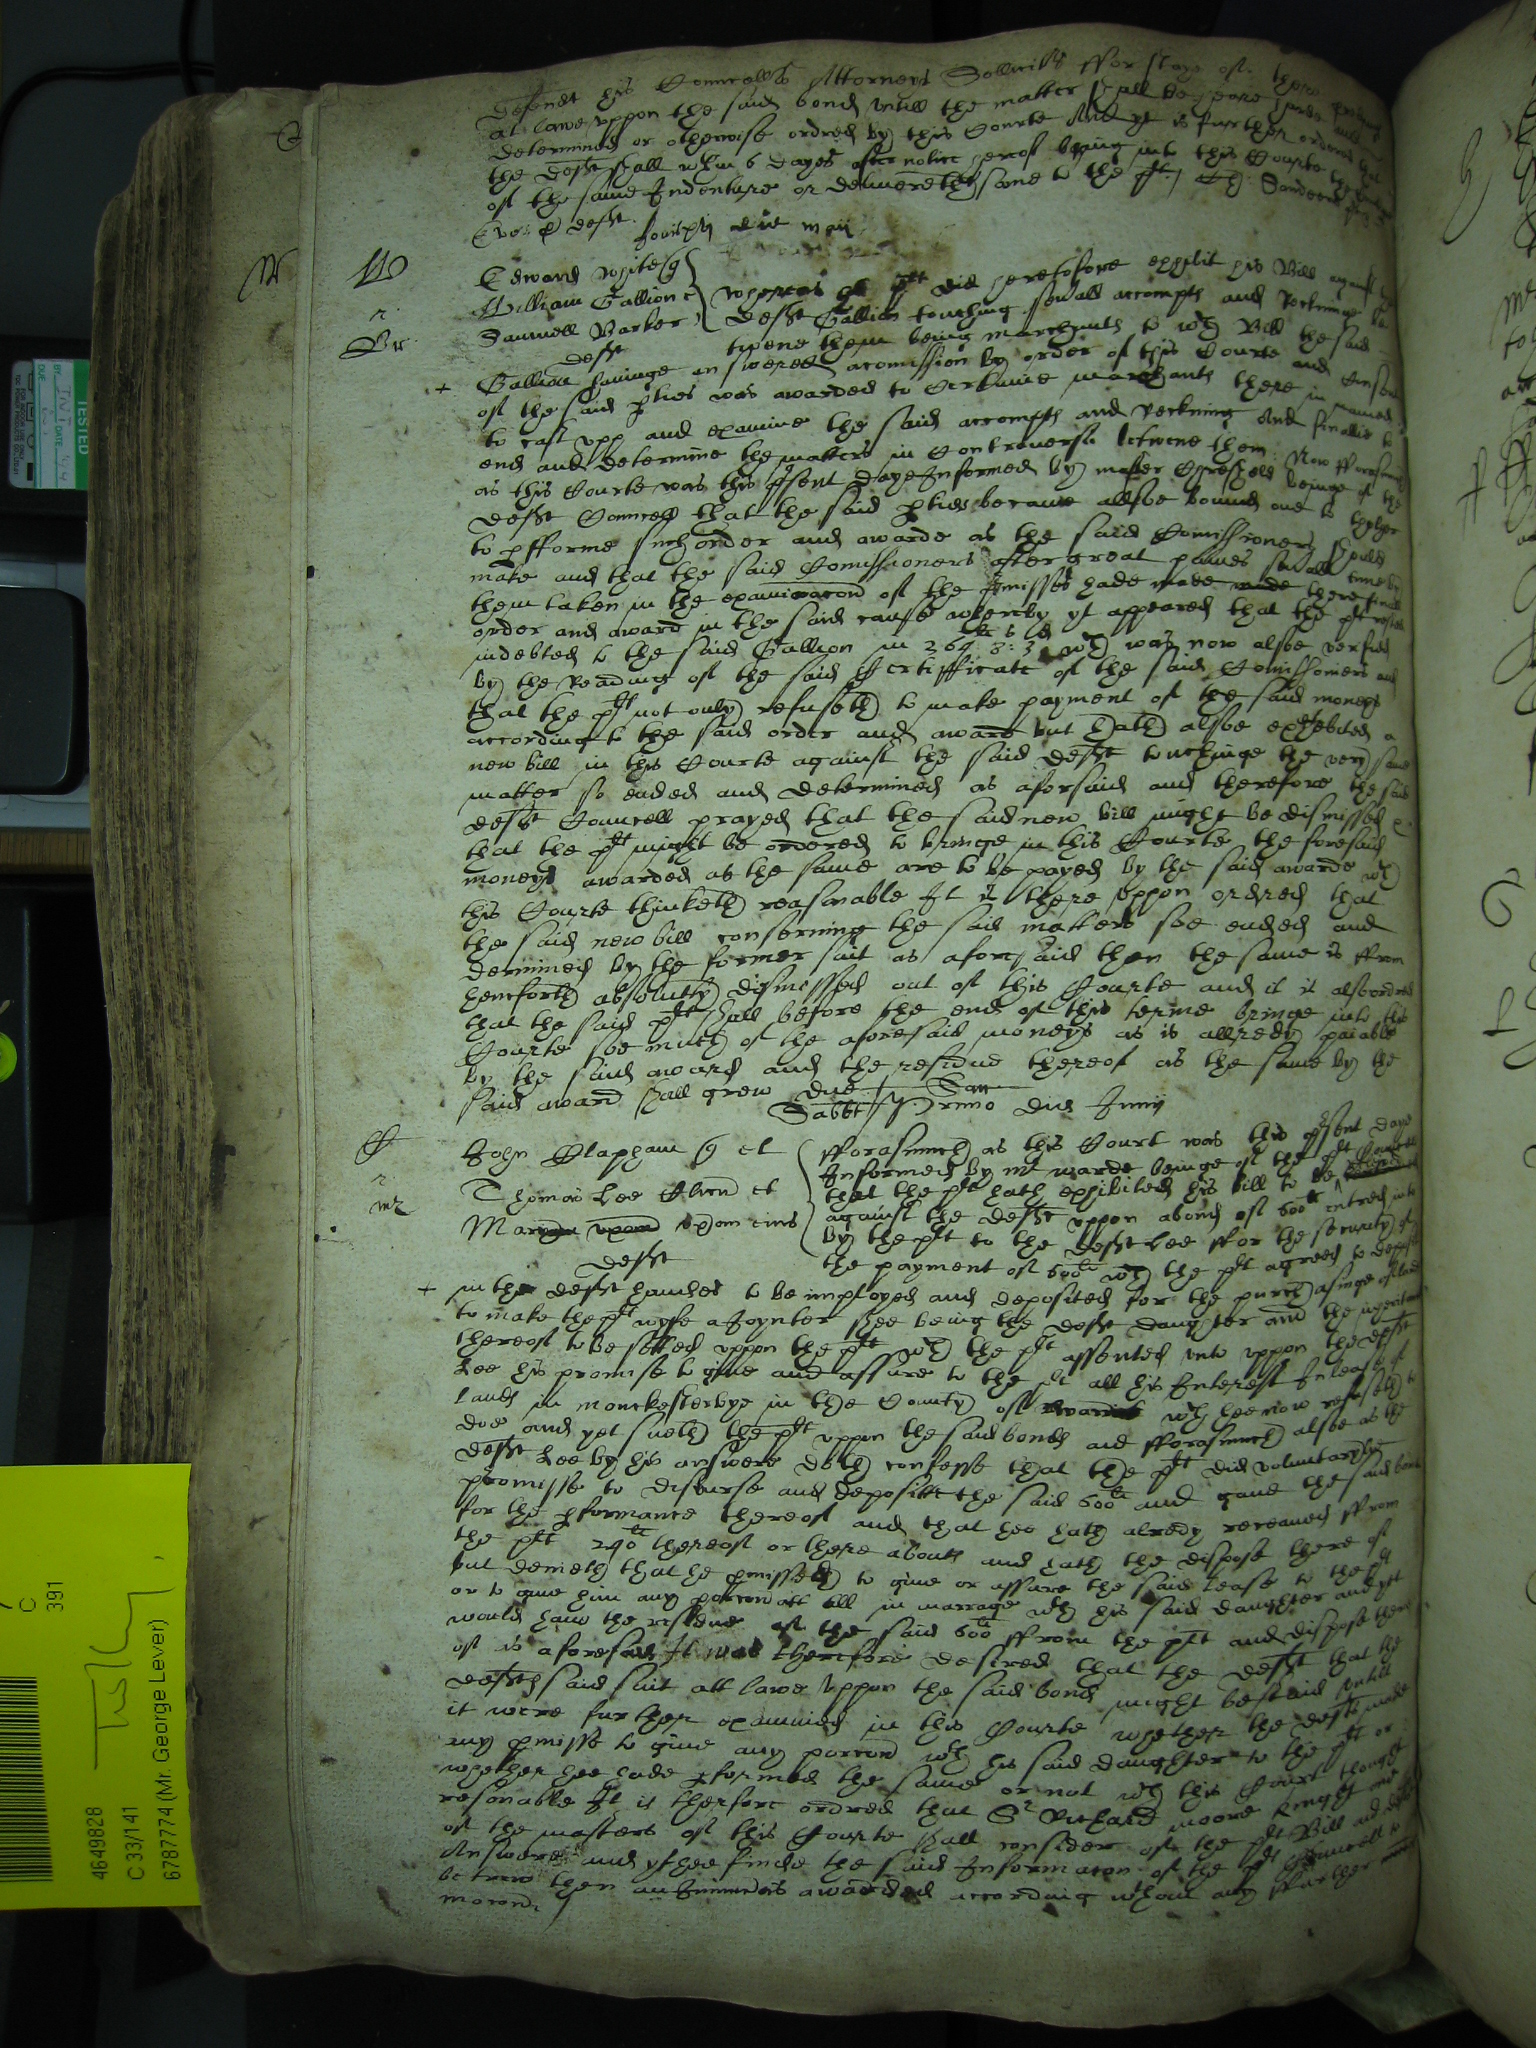 Defendt his Councellrs Attorneys Sollicitrs ffor stay of
at lawe uppon the said bond untill the matter shall be heard
determined or otherwise ordred by this Courte And yt is further ordered that
the Deft shall wthin 6 dayes after notice hereof bringe into this Courte the
of the same Indenture or deliver the same to the plt
Edward White q
William Gallion et
Samuell Barker
deft
Whereas the plt did heretofore exhibit his Bill against the
deft Gallion touching severall accompts and Reckninge be
twene them being marchants to wch Bill the said
Gallion havinge answered a comission by order of this Courte and Consent
of the said pties was awarded to Certaine marchants therein named
to cast upp and examine the said accompts and reckning And finallie to
end and determine the matters in Controversie betwene them. Now fforasmuch
as this Courte was this psent daye Informed by master beinge of the
defts Councell that the said pties became allsoe bound one to thother
to pforme such order and awarde as the said Comissioners should
make and that the said Comissioners after great paines severall times by
them taken in the examinacon of the pmisses hade made there finall
order and award in the said cause whereby yt appeared that the plt rested
indebted to the said Gallion in 264 li 8 s 3 d wch was now alsoe verfied
by the Reading of the said Certifficate of the said Comissioners and
that the plt not only refuseth to make payment of the said moneys
according to the said order and award but hath alsoe exhebited a
new bill in this Courte against the said deft touchinge the very same
matter so ended and determined as aforsaid and therefore the said
defts Councell prayed that the said new bill might be dismissed &
that the plt might be ordered to bringe in this Courte the foresaid
moneys awarded as the same are to be payed by the said awarde wch
this Courte thinketh reasonable It is there uppon ordred that
the said new bill conserning the said matters soe ended and
dermined by the former suit as aforesaid then the same is ffrom
hencforth absolutly dismissed out of this Courte and it is alsoe ordred
that the said plt shall before the end of this terme bringe into this
Courte soe much of the aforesaid moneys as is allredy paiable
by the said award and the residue thereof as the same by the
said award shall grow due
Sabbti Primo die Junij
John Clapham q et
Thomas Lee et
Mar uxom eius
deft
fforasmuch as this Court was this psent daye
Informed by mr warde beinge of the plts Councell
that the plt hath exhibited his bill to be
against the deft uppon a bond of 600li entred into
by the plt to the deft Lee ffor the security of
the payment of 600li wch the plt agreed to deposit
in the defts handes to be imployed and deposited for the purchasinge of land
to make the plts wyfe a Joynter shee being the defts daughter and the inheritance
thereof to be setled uppon the plt wch the plt assented unto uppon the deft
Lee his promise to give and assure to the plt all his Interest In lease of
land in monckesterbye in the County of wch hee now refuseth to
doe and yet sueth the plt uppon the said bond and fforasmuch alsoe as the
deft Lee by his answere doth confesse that the plt did voluntaryly
promisse to disburse and deposit the said 600li and gave the said bond
for the pformance thereof and that hee hath alredy receaved ffrom
the plt 240li thereof or there abouts and hath the dispose there of
but denieth that he pmissed to give or assure the said lease to the plt
or to give him any porcon att all in marriage wth his said daughter and yett
would have the residue of the said 600li ffrom the plt and dispose there
of as aforesaid It was therefore desired that the deft that the
defts said suit att lawe uppon the said bond might be staid untill
it were further examined in this Courte whether the deft made
any pmisse to give any porcon wth his said daughter to the plt or
whether hee hade pformed the same or not wch this Court thought
resonable It is therfore ordred that Sr Richard moore knight one
of the masters of this Courte shall consider of the plts Bill and defts
Answere and yf hee finde the said Informacon of the plts Councell to
be trew then an Iniunction is awarded according wthout any ffurther
mocon
TESTED
4649828
C 33/141
6787774 (Mr. George Lever)
C
391